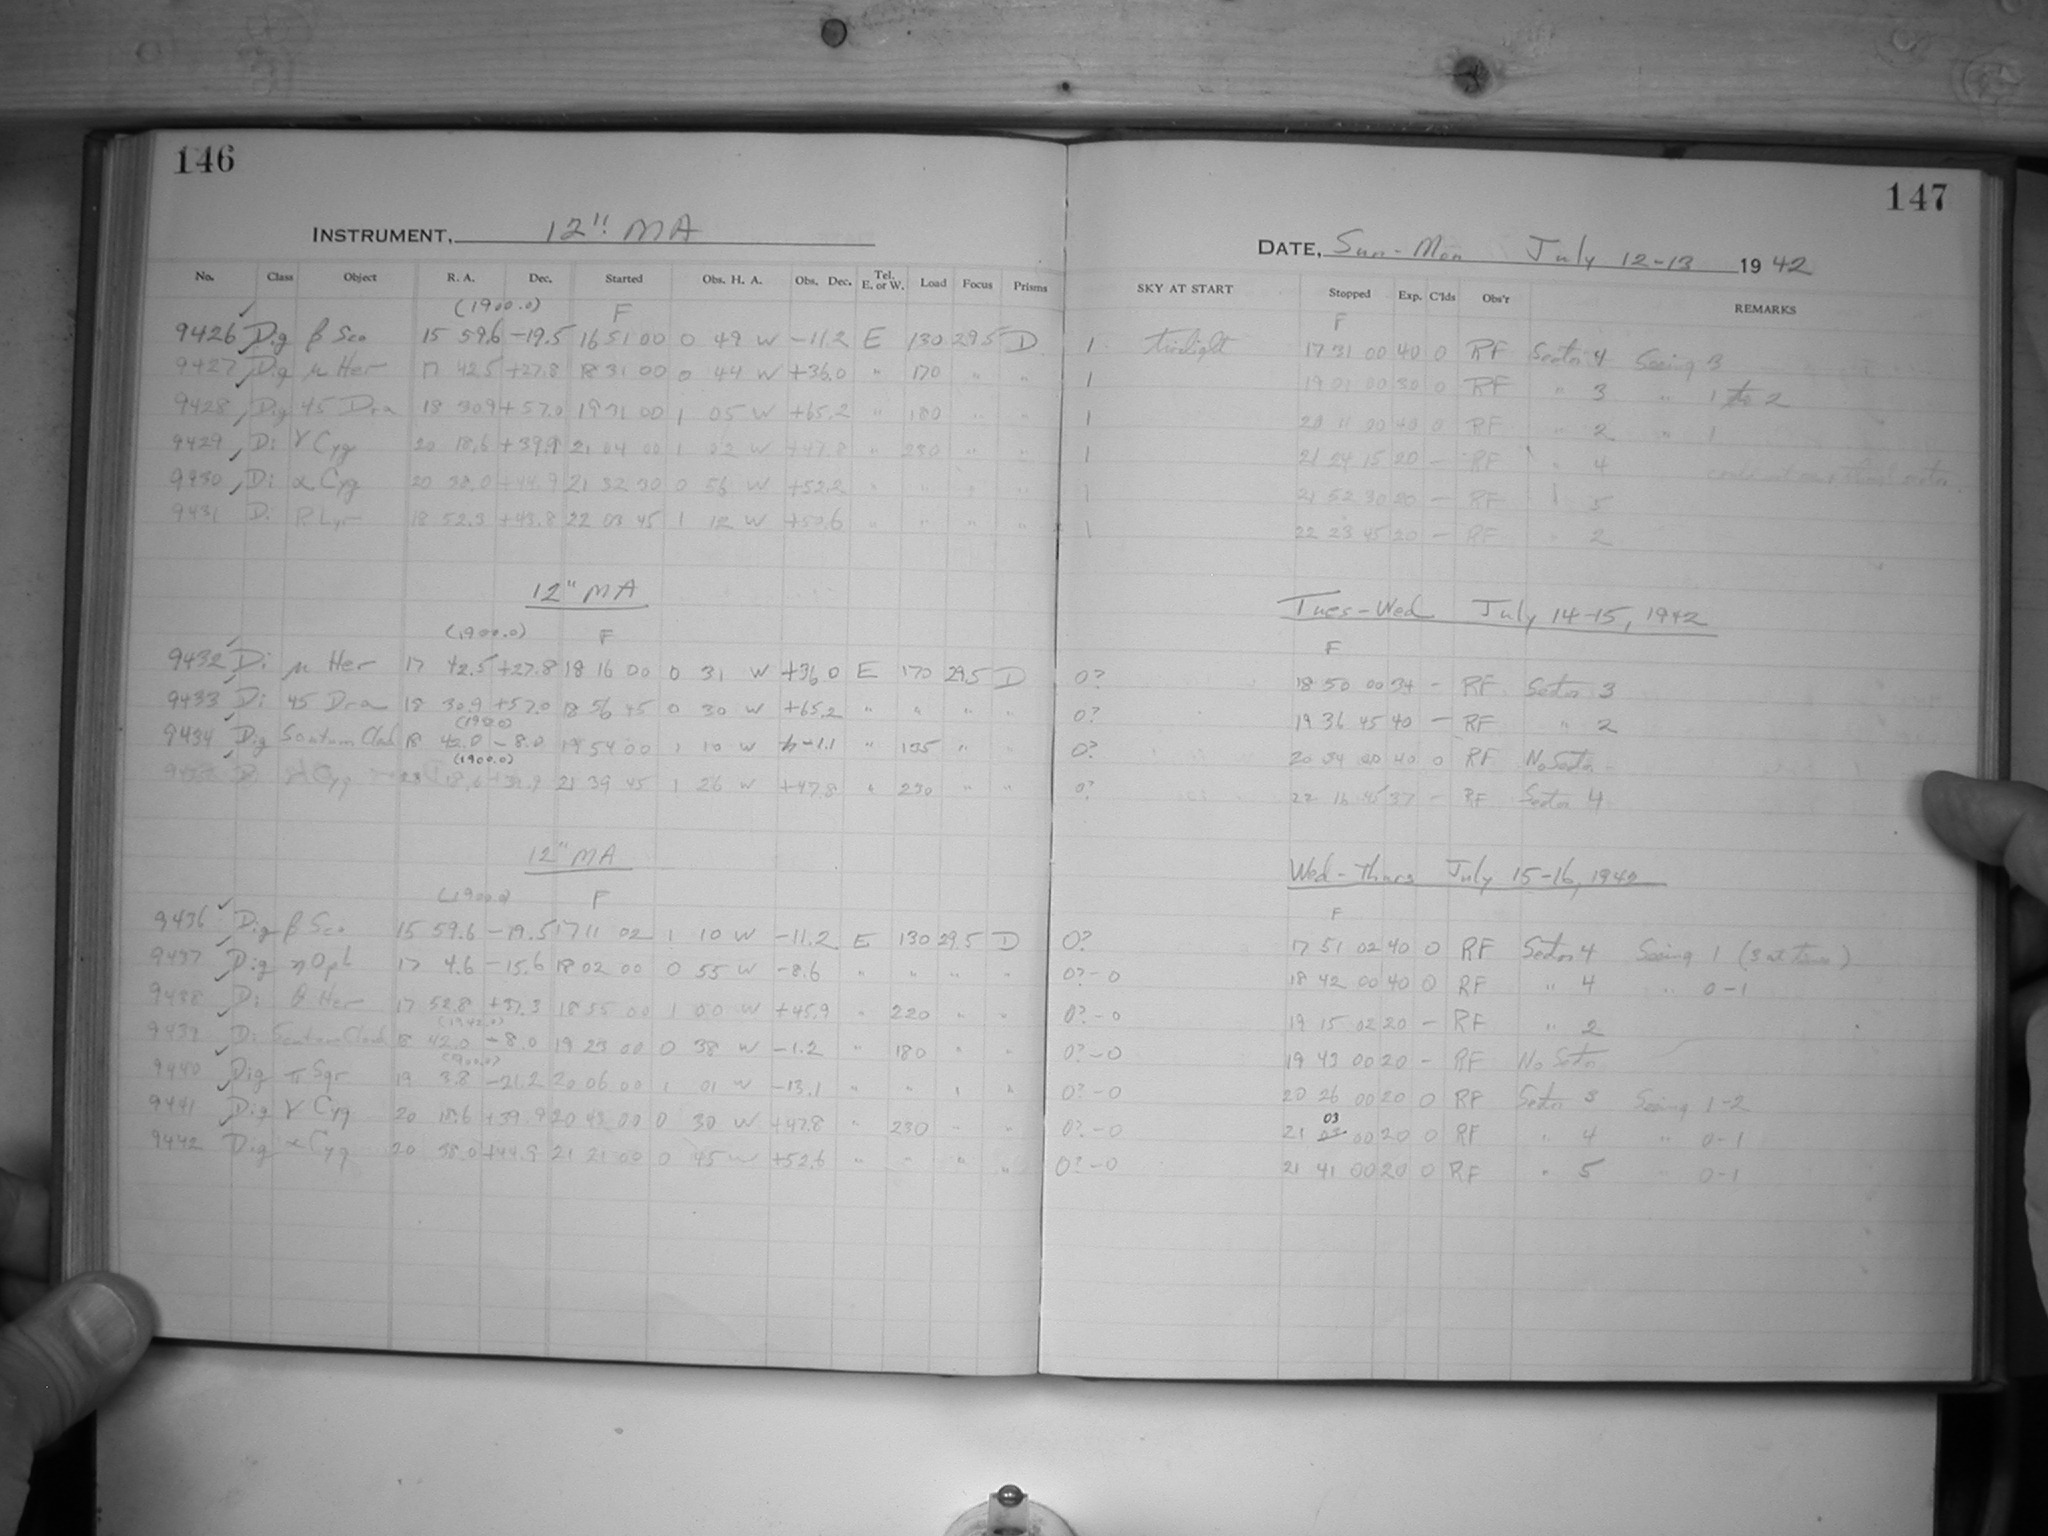 146
INSTRUMENT, 12" MA
No. Class Object R. A. Dec. Started Obs. H. A. Obs. Dec. Tel. E. or W. Load Focus Prisms
(1900.0) F
9426 Dig β Sco 15 59.6 -19.5 16 51 00 0 49 W -11.2 E 130 29.5 D
9427 Dig μ Her 17 42.5 +27.8 18 31 00 0 44 W +36.0 " 170 " "
9428 Dig 45 Dra 18 30.9 +57.0 19 31 00 1 05 W +65.2 " 180 " "
9429 Di γ Cyg 20 18.6 +39.9 21 04 00 1 02 W +47.8 " 230 " "
9430 Di α Cyg 20 38.0 +44.9 21 32 30 0 56 W +52.2 " " " "
9431 Di R Lyr 18 52.3 +43.8 22 03 45 1 12 W +50.6 " " " "
12" MA
(1900.0) F
9432 Di μ Her 17 42.5 +27.8 18 16 00 0 31 W +36.0 E 170 29.5 D
9433 Di 45 Dra 18 30.9 +57.0 18 56 45 0 30 W +65.2 " " " "
9434 Dig Scutum Cloud 18 42.0 -8.0 19 54 00 1 10 W -1.1 " "
(1900.0)
Cyg 18.6 +39.9 21 39 45 1 26 W +47.8 " 230 " "
12" MA
(1900.0) F
9436 Dig β Sco 15 59.6 -19.5 17 11 02 1 10 W -11.2 E 130 29.5 D
9437 Dig η Oph 17 4.6 -15.6 18 02 00 0 55 W -8.6 " " " "
9438 Di θ Her 17 52.8 +37.3 18 55 00 1 00 W +45.9 " 220 " "
(1942.0)
9439 Di Scutum Cloud 18 42.0 -8.0 19 23 00 0 38 W -1.2 " 180 " "
(1900.0)
9440 Dig π Sgr 19 3.8 -21.2 20 06 00 1 01 W -13.1 " " " "
9441 Dig γ Cyg 20 18.6 +39.9 20 43 00 0 30 W +47.8 " 230 " "
9442 Dig α Cyg 20 38.0 +44.9 21 21 00 0 45 W +52.6 " " " "
147
DATE, Sun-Mon July 12-13 1942
SKY AT START Stopped Exp. C'lds Obs'r REMARKS
F
1 twilight 17 31 00 40 0 RF Sector 4 Seeing 3
1 19 01 00 30 0 RF " 3 " 1 to 2
1 20 11 00 40 0 RF " 2 " 1
1 21 24 15 20 - RF " 4
1 21 52 30 20 - RF 5
1 22 23 45 20 - RF " 2
Tues-Wed July 14-15, 1942
F
0? 18 50 00 34 - RF Sector 3
0? 19 36 45 40 - RF " 2
0? 20 34 00 40 0 RF No Sector
0? 22 16 45 37 - RF Sector 4
Wed-Thurs July 15-16, 1942
F
0? 17 51 02 40 0 RF Sector 4 Seeing 1 (3 at times)
0?-0 18 42 00 40 0 RF " 4 " 0-1
0?-0 19 15 02 20 - RF " 2
0?-0 19 43 00 20 - RF No Sector
0?-0 20 26 00 20 0 RF Sector 3 Seeing 1-2
03
0?-0 21 00 20 0 RF " 4 " 0-1
0?-0 21 41 00 20 0 RF " 5 " 0-1